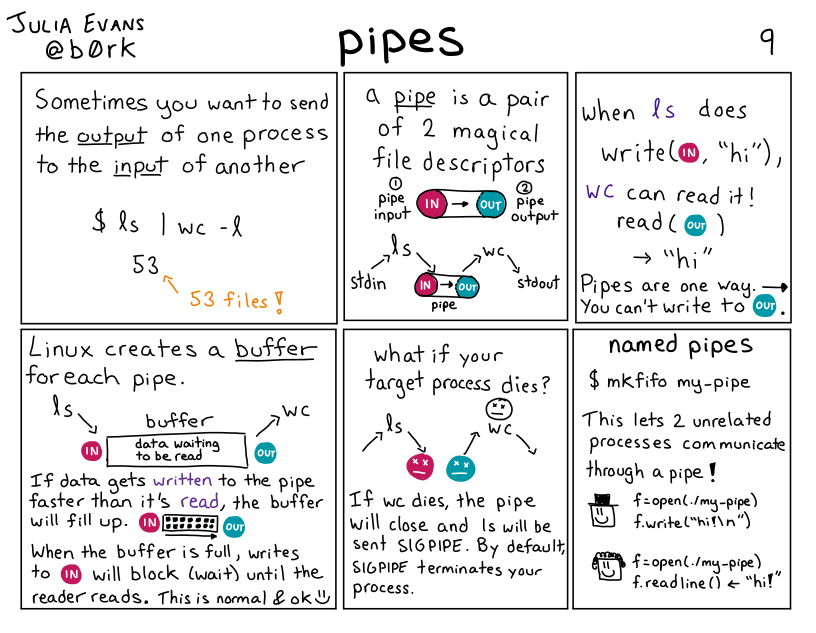 JULIA EVANS
@b0rk
pipes
9
Sometimes you want to send
the output of one process
to the input of another
$ ls | wc -l
53
53 files!
a pipe is a pair
of 2 magical
file descriptors
① ②
pipe input
IN → OUT
pipe output
ls
wc
stdin
IN → OUT
stdout
pipe
when ls does
write(IN, "hi"),
wc can read it!
read( OUT )
→ "hi"
Pipes are one way. →
You can't write to OUT.
Linux creates a buffer
for each pipe.
ls
wc
buffer
IN
data waiting
to be read
OUT
If data gets written to the pipe
faster than it's read, the buffer
will fill up. IN OUT
When the buffer is full, writes
to IN will block (wait) until the
reader reads. This is normal & ok
what if your
target process dies?
ls
wc
If wc dies, the pipe
will close and ls will be
sent SIGPIPE. By default,
SIGPIPE terminates your
process.
named pipes
$ mkfifo my-pipe
This lets 2 unrelated
processes communicate
through a pipe!
f=open(./my-pipe)
f.write("hi!\n")
f=open(./my-pipe)
f.readline() ← "hi!"